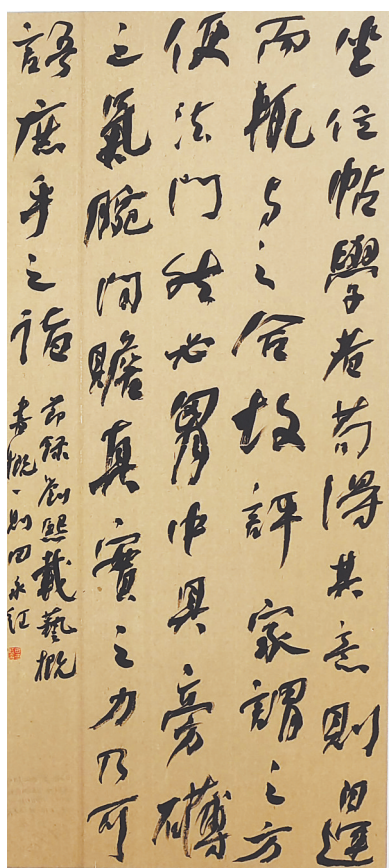 坐位帖學者苟得其意則自運
而輒与之合故評家謂之方
便法門然必胷中具旁礴
之氣腕間贍真實之力乃可
語庶乎之詣
节録劉熙載藝概
書概一則田永紅